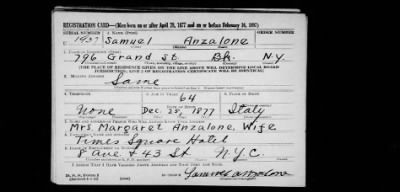 REGISTRATION CARD—(Men born on or after April 28, 1877 and on or before February 16, 1897)
SERIAL NUMBER 1. NAME (Print) ORDER NUMBER
1937 Samuel Anzalone
(First) (Middle) (Last)
2. PLACE OF RESIDENCE (Print)
796 Grand St. Bk. N.Y.
[THE PLACE OF RESIDENCE GIVEN ON THE LINE ABOVE WILL DETERMINE LOCAL BOARD
JURISDICTION; LINE 2 OF REGISTRATION CERTIFICATE WILL BE IDENTICAL]
3. MAILING ADDRESS
Same
4. TELEPHONE
64
None Dec. 25, 1877 Italy
7. NAME AND ADDRESS OF PERSON WHO WILL ALWAYS KNOW YOUR ADDRESS
Mrs. Margaret Anzalone, Wife
Times Square Hotel
8 Ave + 43 St N.Y.C.
I AFFIRM THAT I HAVE VERIFIED ABOVE ANSWERS AND THAT THEY ARE TRUE.
Samuel Anzalone